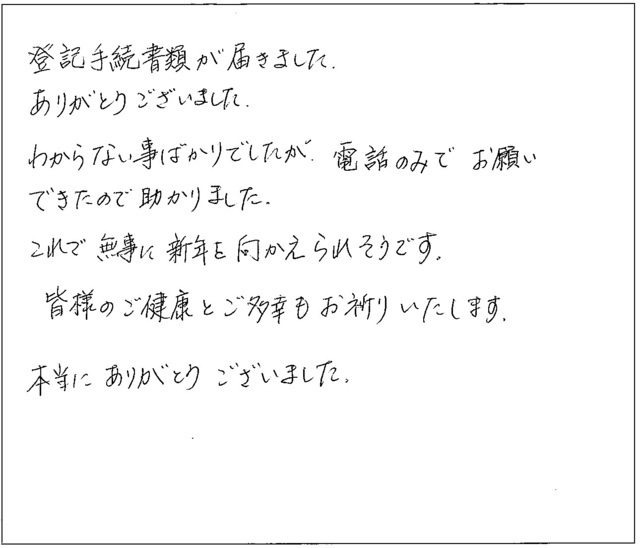 登記手続書類が届きました.
ありがとうございました.
わからない事ばかりでしたが. 電話のみで お願い
できたので 助かりました.
これで 無事に 新年を 向かえられそうです.
皆様の ご健康と ご多幸も お祈り いたします.
本当に ありがとう ございました.